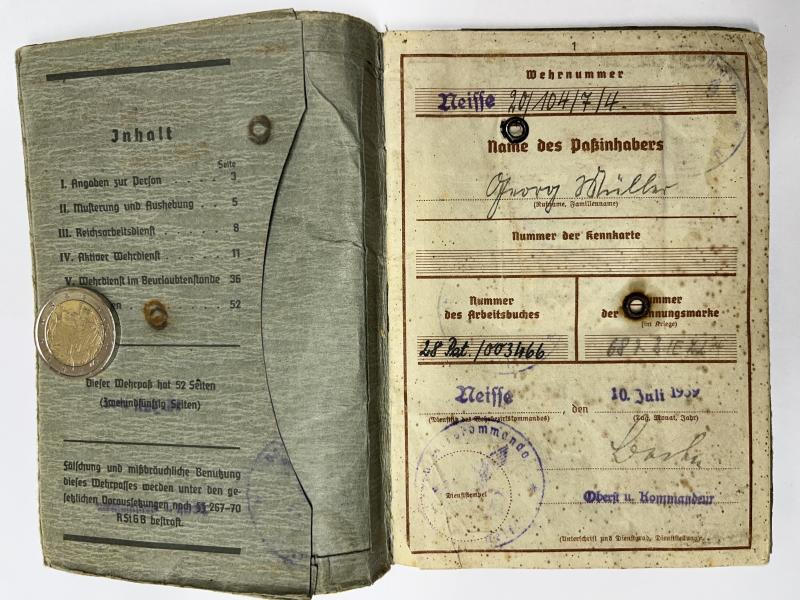 Inhalt
Seite
I. Angaben zur Person . . . . . 3
II. Musterung und Aushebung . . 5
III. Reichsarbeitsdienst . . . . 8
IV. Aktiver Wehrdienst . . . . 11
V. Wehrdienst im Beurlaubtenstande 36
52
Dieser Wehrpaß hat 52 Seiten
(Zweiundfünfzig Seiten)
Fälschung und mißbräuchliche Benutzung
dieses Wehrpasses werden unter den ge-
setzlichen Voraussetzungen nach §§ 267-70
RStGB bestraft.
1
Wehrnummer
Neisse 20/104/7/4.
Name des Paßinhabers
Georg Müller
(Rufname, Familienname)
Nummer der Kennkarte
Nummer
des Arbeitsbuches
28 Pat./003466
Nummer
der
(im Kriege)
Neisse, den 10. Juli 1939
(Dienstsitz des Wehrbezirkskommandos) (Tag, Monat, Jahr)
Dienststempel
Oberst u. Kommandeur
(Unterschrift und Dienstgrad, Dienststellung)